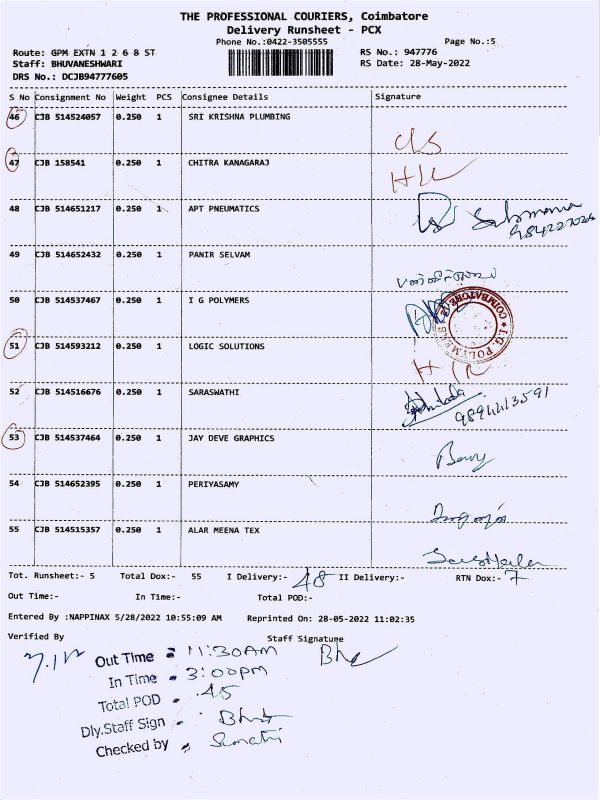 THE PROFESSIONAL COURIERS, Coimbatore
Delivery Runsheet - PCX
Phone No.:0422-3505555 Page No.:5
Route: GPM EXTN 1 2 6 8 ST RS No.: 947776
Staff: BHUVANESHWARI RS Date: 28-May-2022
DRS No.: DCJB94777605
S No Consignment No Weight PCS Consignee Details Signature
46 CJB 514524057 0.250 1 SRI KRISHNA PLUMBING
47 CJB 158541 0.250 1 CHITRA KANAGARAJ
48 CJB 514651217 0.250 1 APT PNEUMATICS
49 CJB 514652432 0.250 1 PANIR SELVAM
50 CJB 514537467 0.250 1 I G POLYMERS
51 CJB 514593212 0.250 1 LOGIC SOLUTIONS
52 CJB 514516676 0.250 1 SARASWATHI
9894413591
53 CJB 514537464 0.250 1 JAY DEVE GRAPHICS
54 CJB 514652395 0.250 1 PERIYASAMY
55 CJB 514515357 0.250 1 ALAR MEENA TEX
Tot. Runsheet:- 5 Total Dox:- 55 I Delivery:- 48 II Delivery:- RTN Dox:- 7
Out Time:- In Time:- Total POD:-
Entered By :NAPPINAX 5/28/2022 10:55:09 AM Reprinted On: 28-05-2022 11:02:35
Verified By Staff Signature
Out Time 11:30AM
In Time 3:00PM
Total POD 45
Dly.Staff Sign
Checked by Sumathi